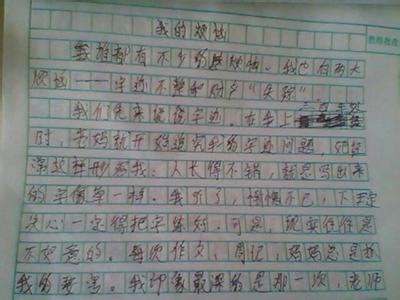 我的烦恼
谁都有不少的烦恼。我也有两大
烦恼——字迹不整和财产“失踪”
我们先来说说字迹。在上
时，老妈就开始追究我的字迹问题，她
这样形容我：人长得不错，就是写出来
的字像草一样。我听了，惭愧不已，下定
决心一定得把字练好。可是，现实往往是
不如意的。每次作文、周记，妈妈总是
我的。我印象最深的是那一次，老师